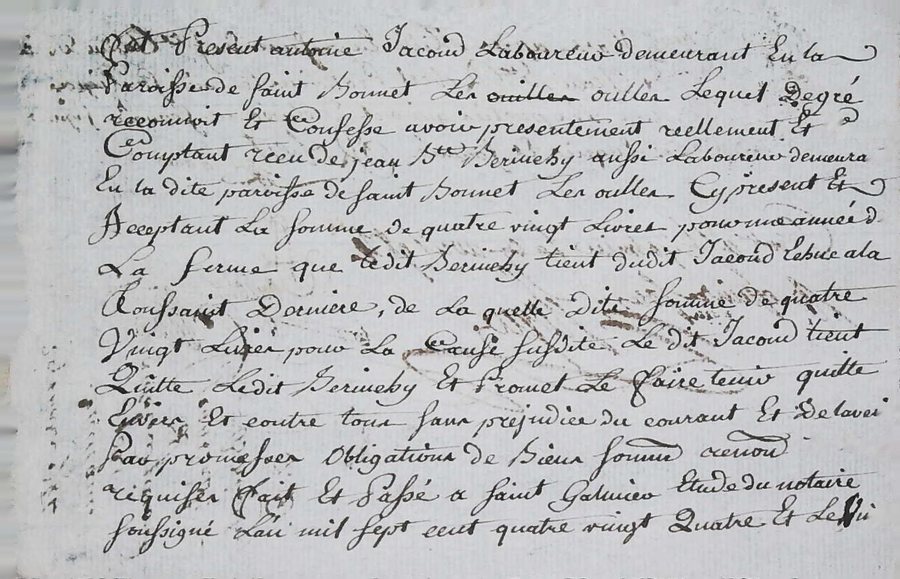 Est Present antoine Jacoud Laboureur demeurant En la
Paroisse de saint Bonnet Les ouilles oulles Lequel Degré
reconnoit Et Confesse avoir presentement reellement Et
Comptant recu de jean Bte Berinchy aussi Laboureur demeura
En la dite paroisse de saint Bonnet Les oulles Cy present Et
Acceptant La somme de quatre vingt Livres pour une année d
La ferme que ledit Berinchy tient dudit Jacoud Echue a la
Toussaint Derniere, de La quelle Dite somme de quatre
Vingt Livres pour La Cause susdite Le dit Jacoud tient
Quitte Ledit Berinchy Et Promet Le faire tenir quitte
Envers Et contre tous sans prejudice du courant Et de
Par promesses Obligations de Biens somm renon
requises fait Et Passé a saint Galmier Etude du notaire
soussigné L'an mil sept cent quatre vingt Quatre Et Le